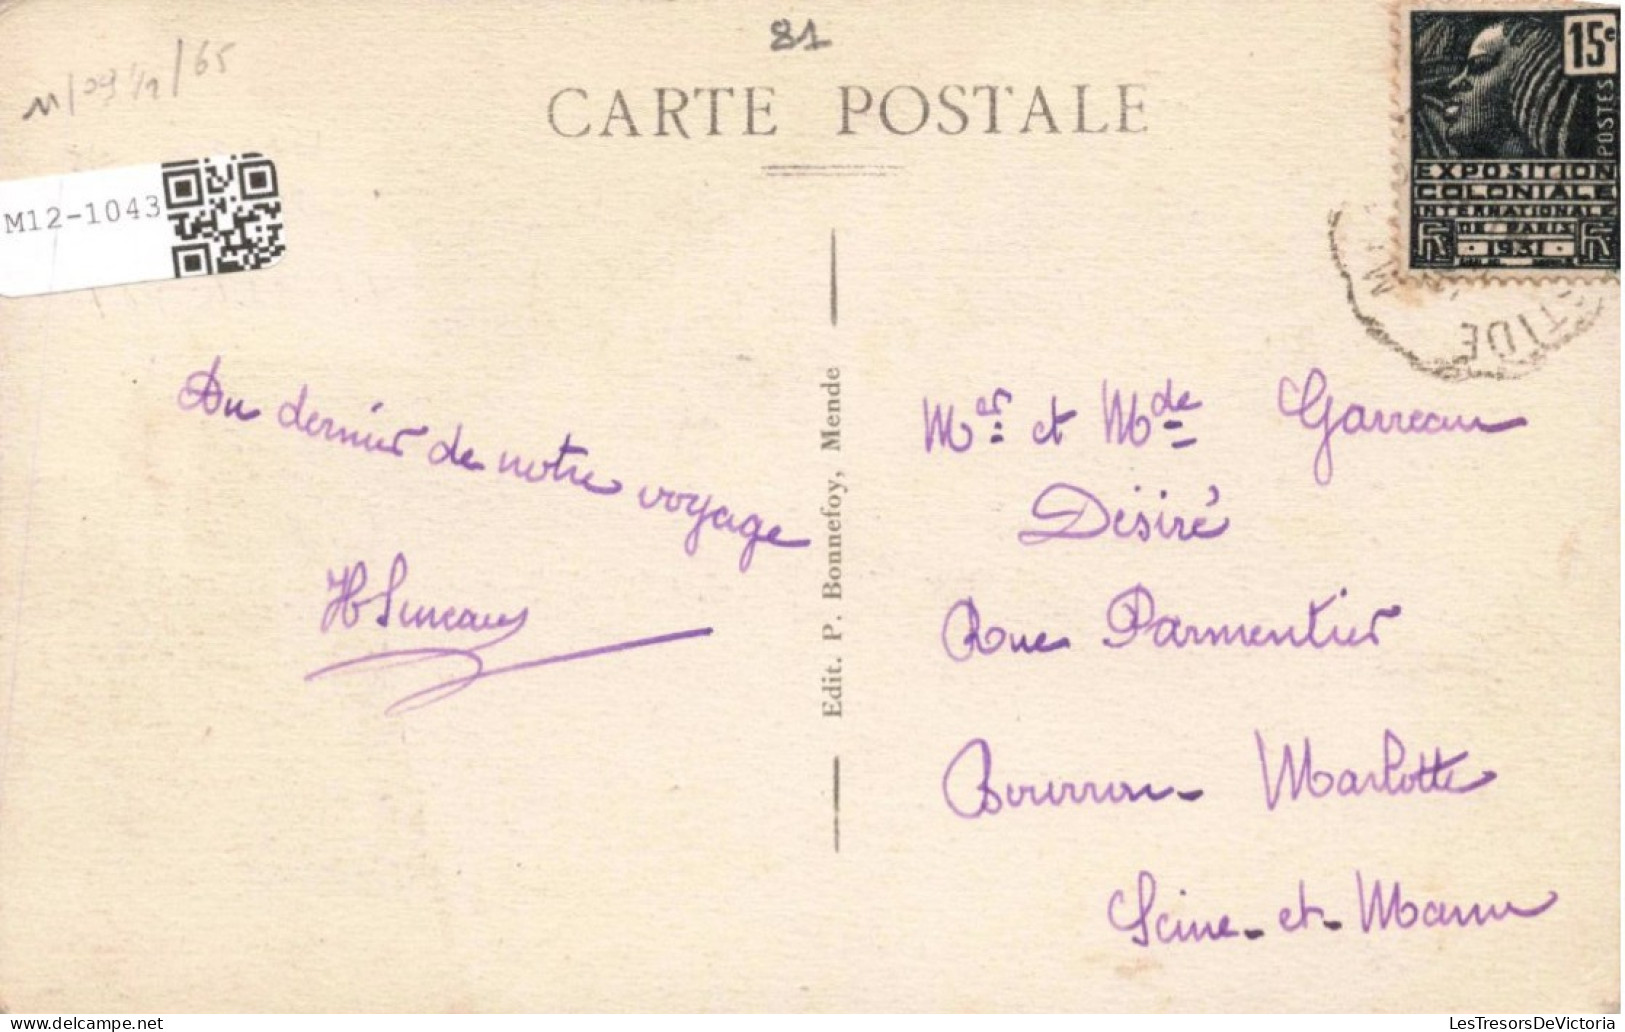 81
CARTE POSTALE
15c
POSTES
EXPOSITION
COLONIALE
INTERNATIONALE
DE PARIS
1931
M12-1043
TIDE
Du dernier de notre voyage
Edit. P. Bonnefoy, Mende
Mer et Mde Garreau
Désiré
Rue Parmentier
Bourron - Marlotte
Seine-et-Marne
https://www.delcampe.net
LesTresorsDeVictoria